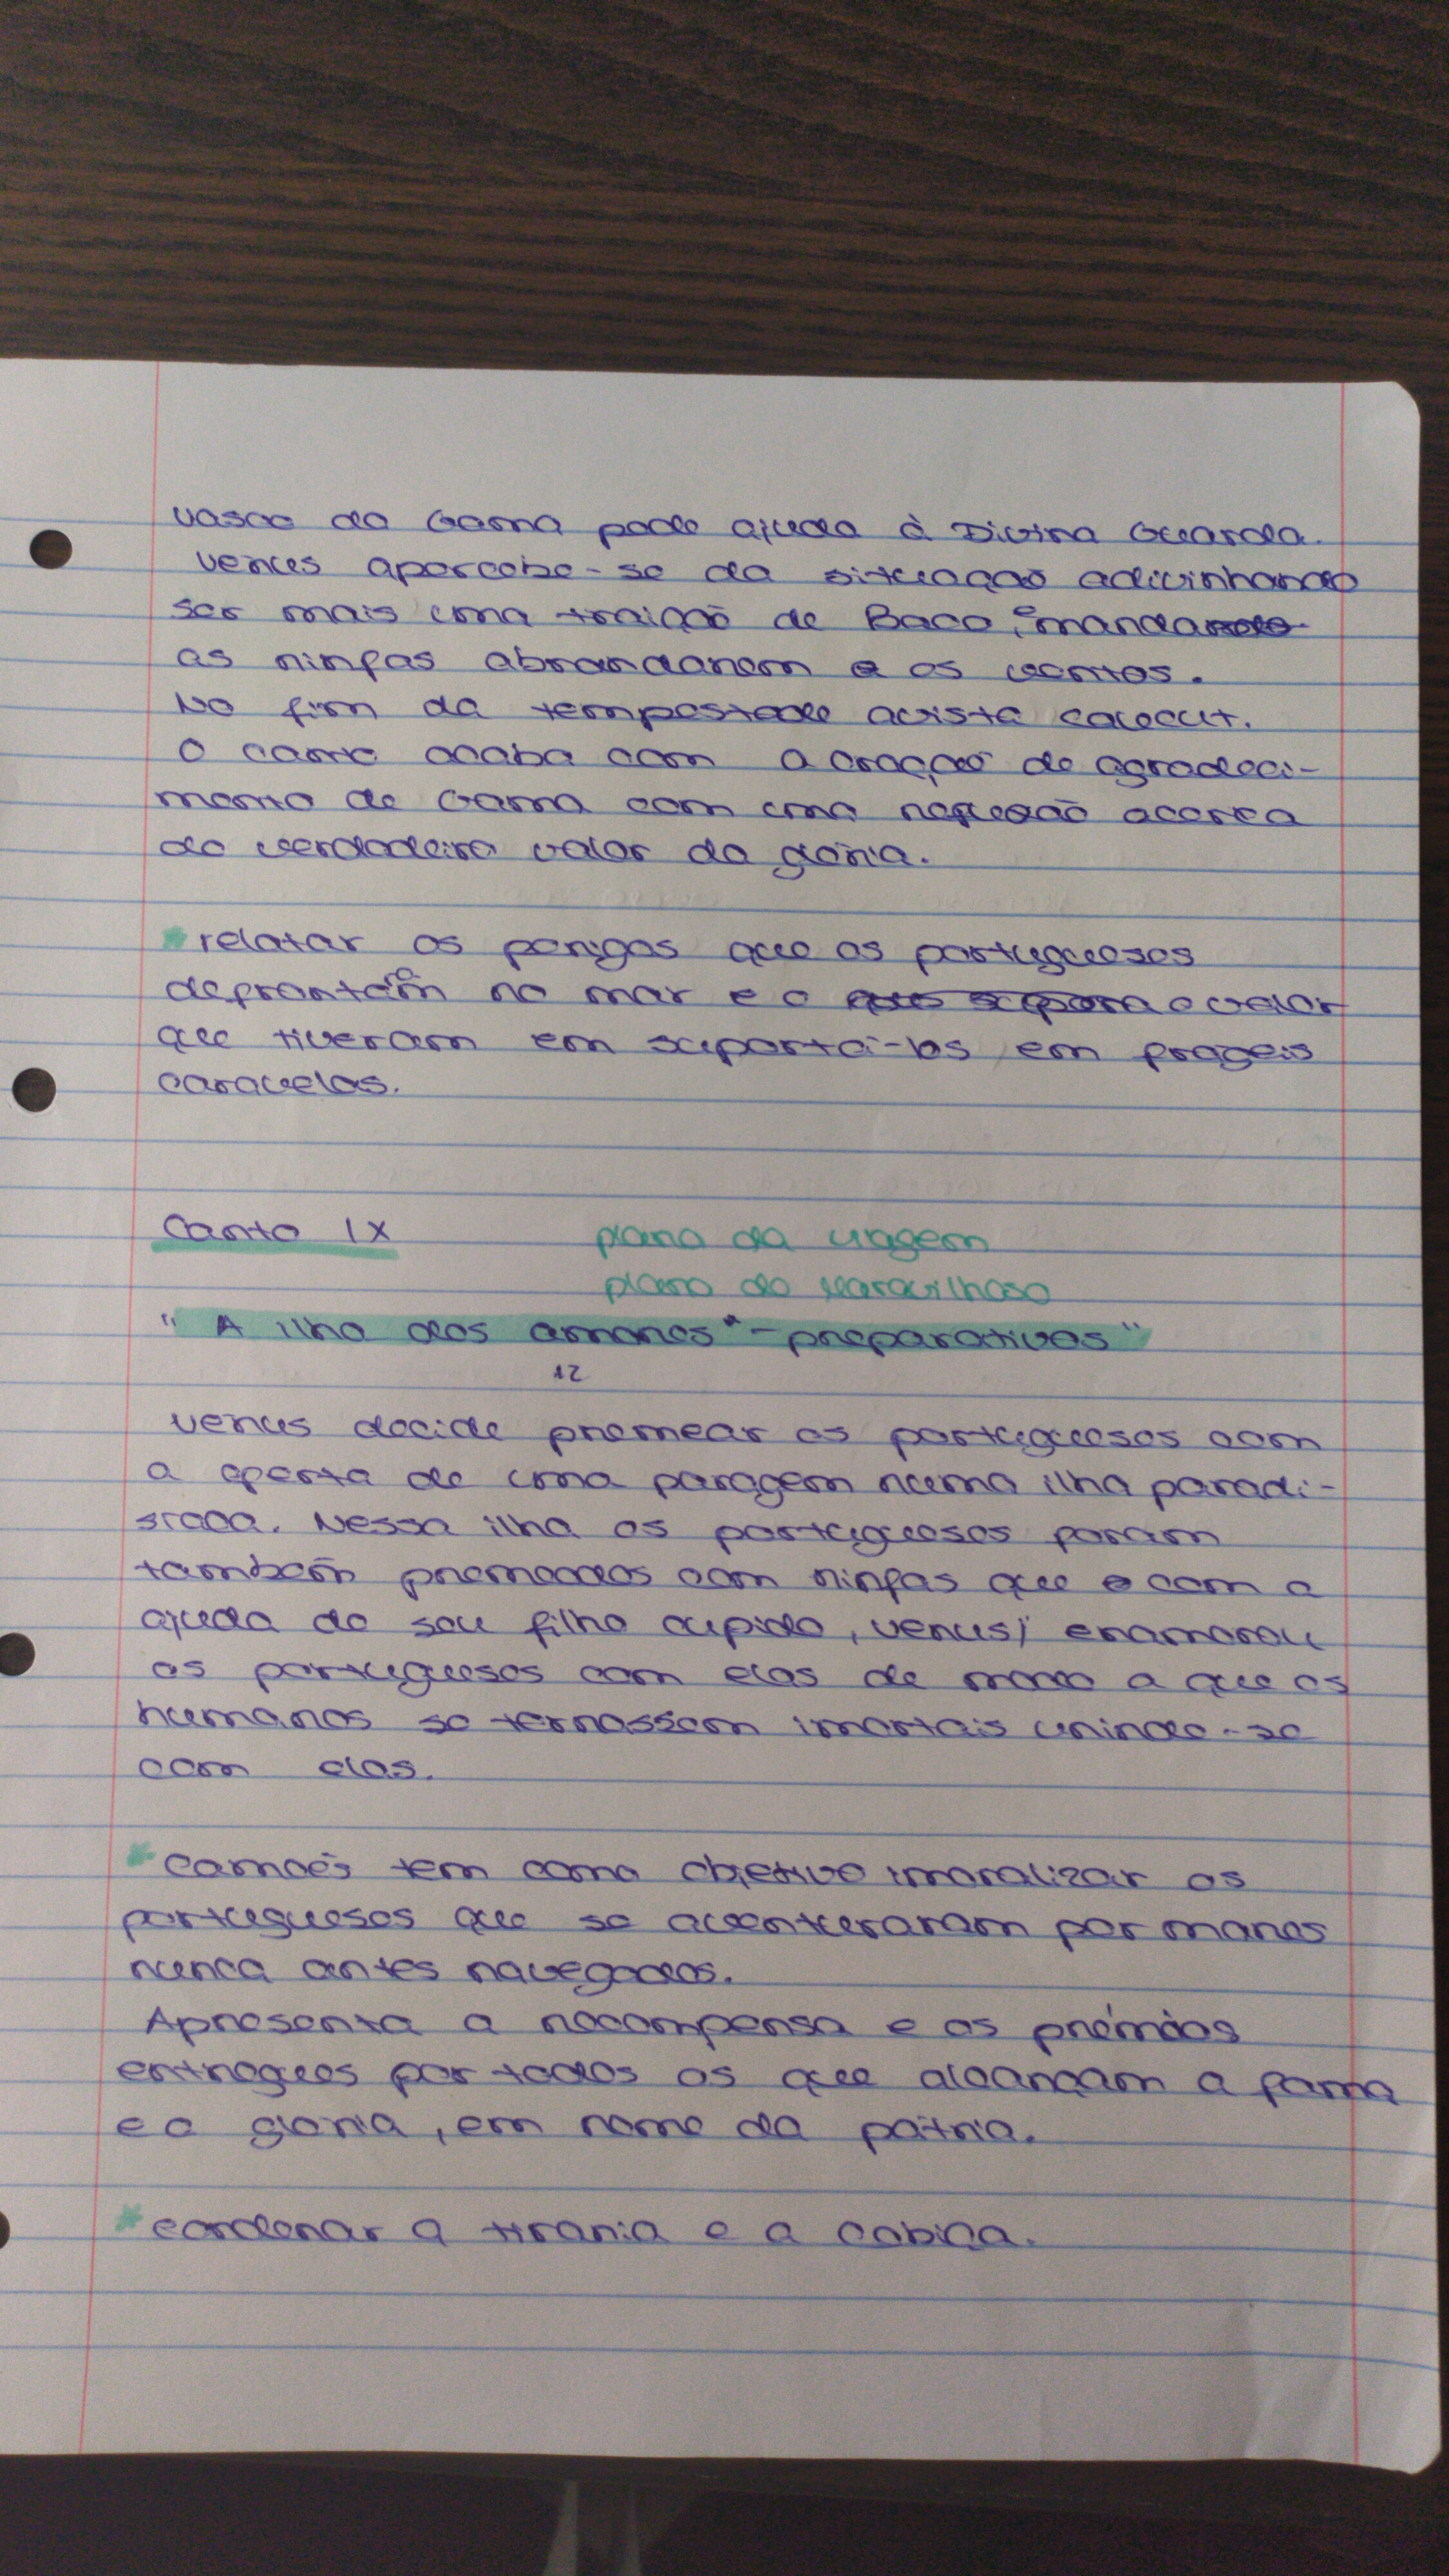 Vasco da Gama pede ajuda à Divina Guarda.
Venus apercebe-se da situação adivinhando
ser mais uma traição de Baco, e manda
as ninfas abrandarem os ventos.
No fim da tempestade avista Calecut.
O canto acaba com a oração de agradeci-
mento de Gama com uma reflexão acerca
do verdadeiro valor da glória.
* relatar os perigos que os portugueses
defrontam no mar e o valor
que tiveram em suportá-los em frágeis
caravelas.
Canto IX
plano da viagem
plano do Maravilhoso
"A ilha dos amores" - preparativos"
12
Venus decide premear os portugueses com
a oferta de uma paragem numa ilha paradi-
síaca. Nessa ilha os portugueses foram
também premeados com ninfas que com a
ajuda do seu filho cupido, venus, enamorou
os portugueses com elas de modo a que os
humanos se tornassem imortais unindo-se
com elas.
* Camões tem como objetivo imoralizar os
portugueses que se aventuraram por mares
nunca antes navegados.
Apresenta a recompensa e os prémios
entregues por todos os que alcançam a fama
e a glória, em nome da pátria.
* condenar a tirania e a cobiça.